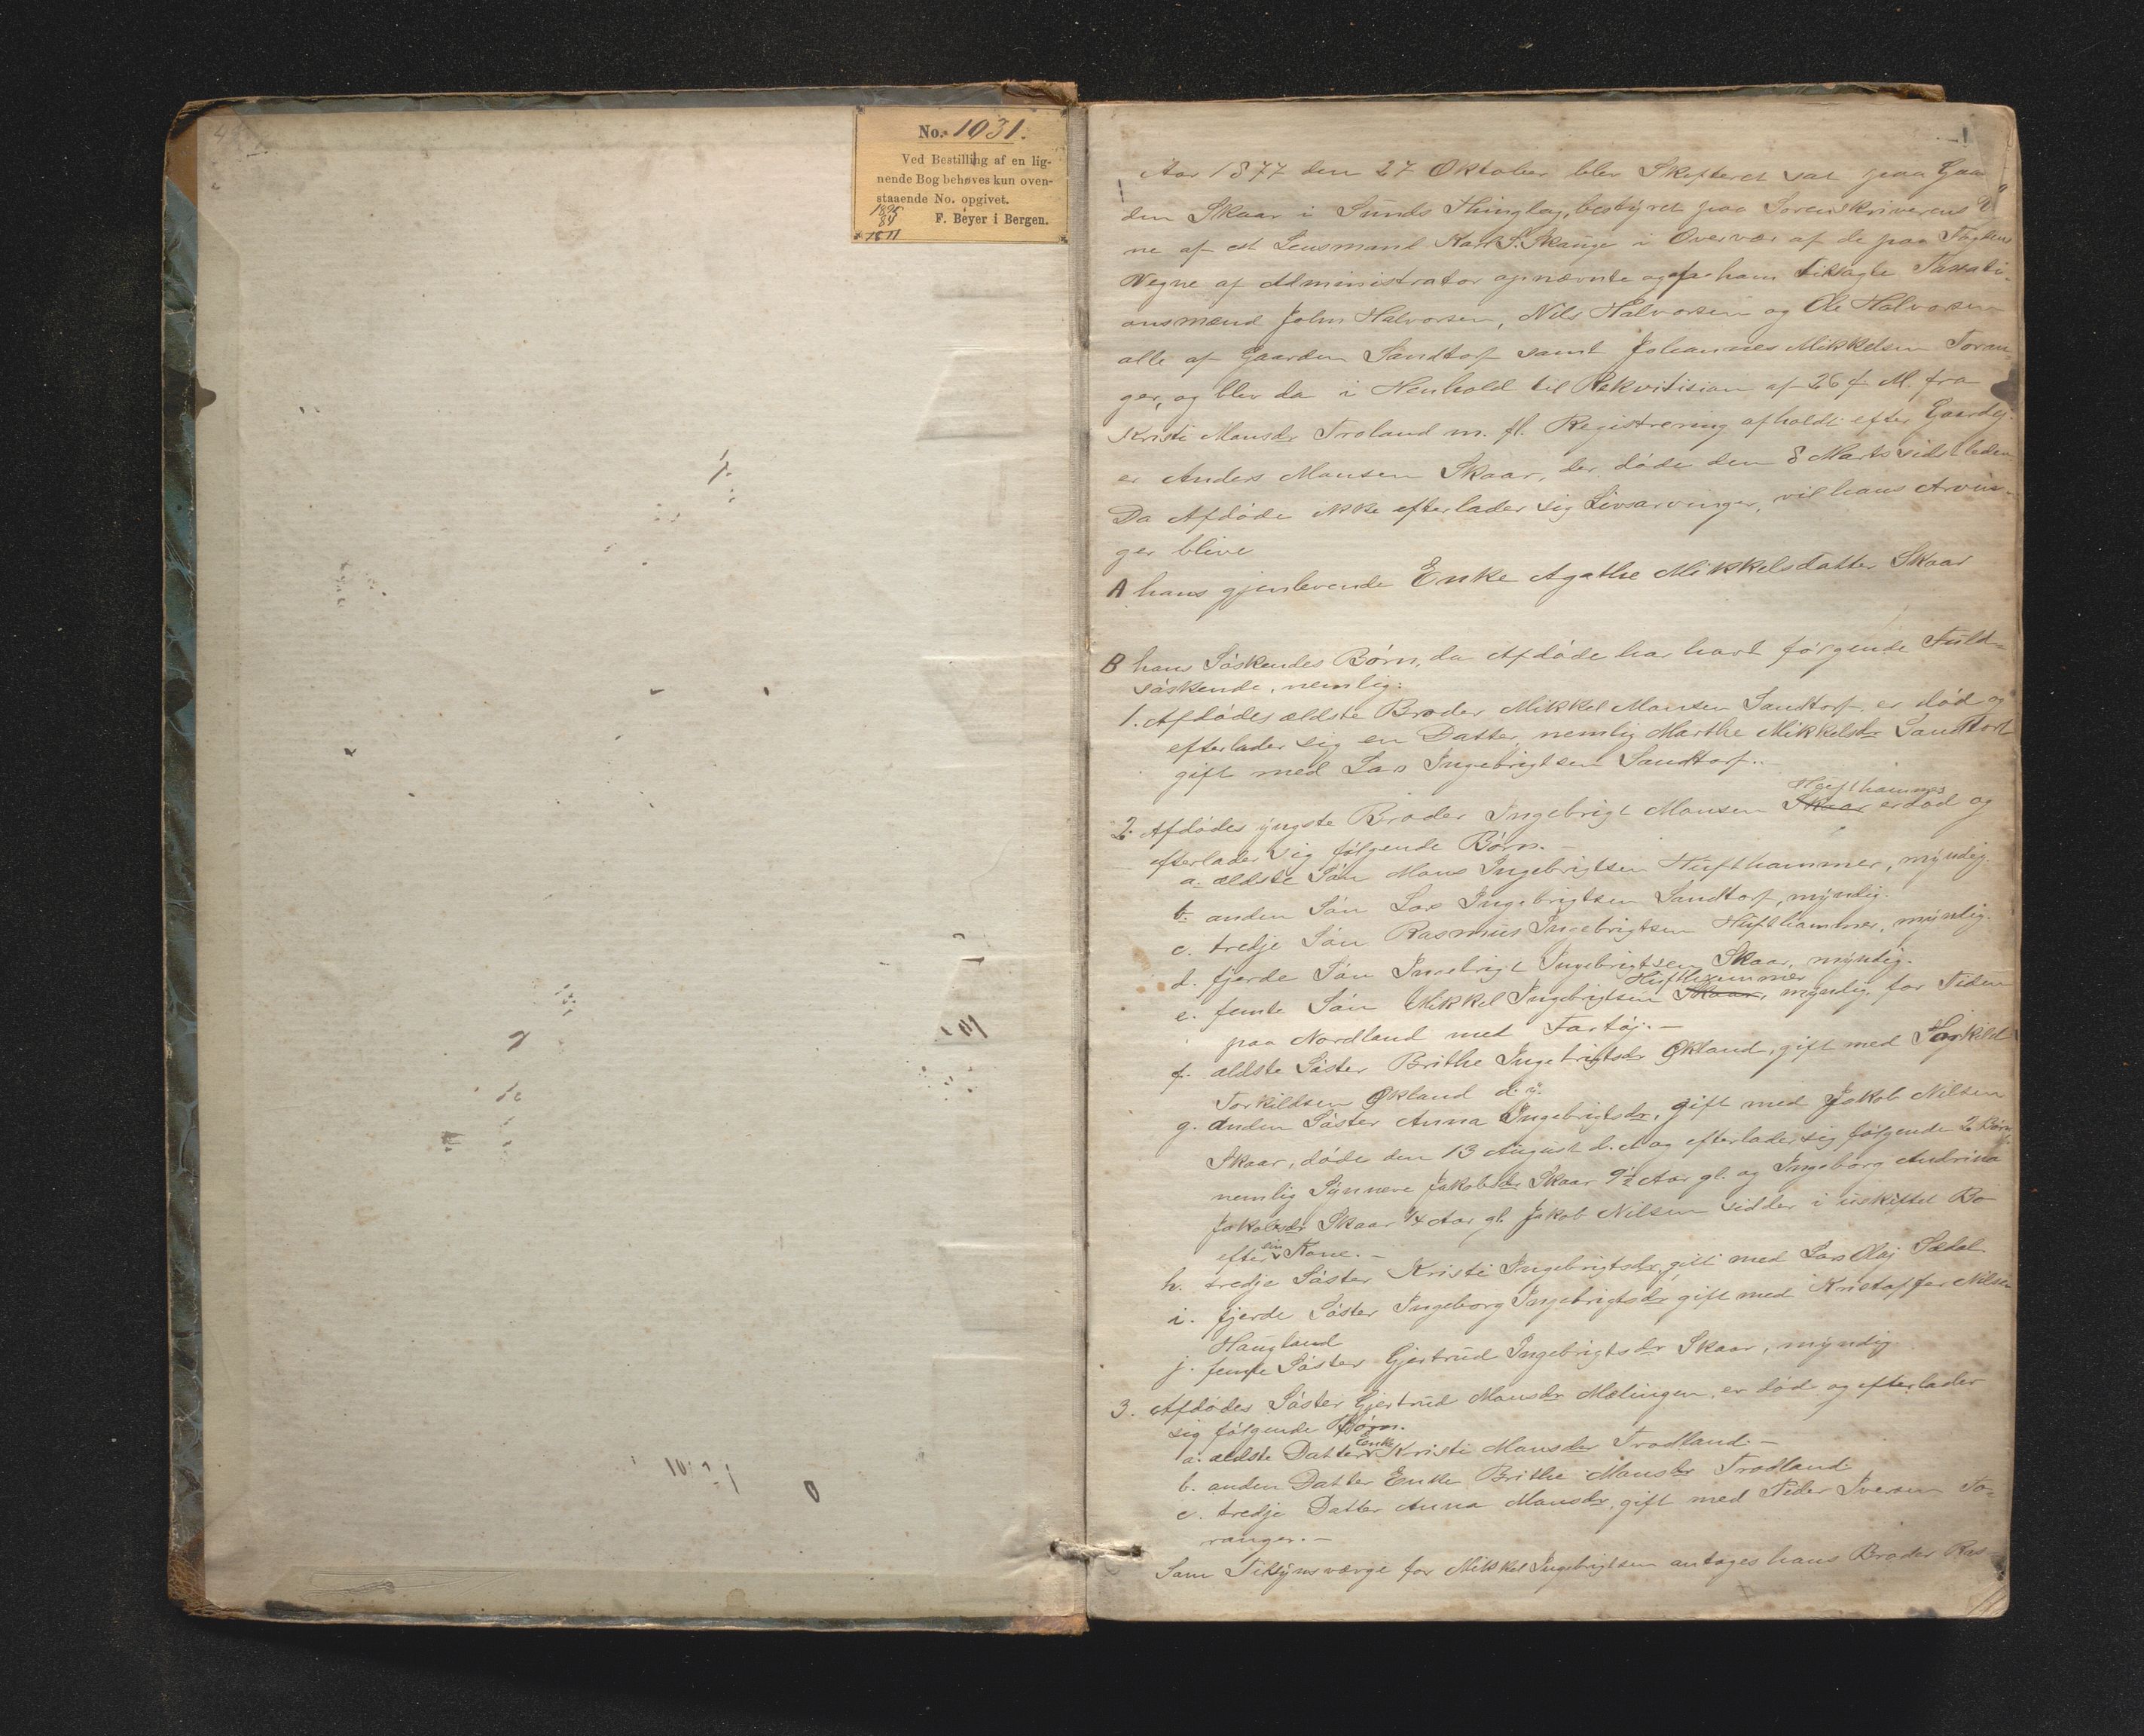 No. 1031.
Ved Bestilling af en lig-
nende Bog behøves kun oven-
staaende No. opgivet.
F. Beyer i Bergen.
1
Aar 1877 den 27 Oktober blev Skifteret sat paa Gaar
den Skaar i Sunds Thinglag, bestyret paa Sorenskriverens Veg
ne af cst Lensmand Karl S. Skauge i Overvær af de paa Fogdens
Vegne af Administrator opnævnte og af ham tilsagte Taxati-
onsmænd John Halvorsen, Nils Halvorsen og Ole Halvorsen
alle af Gaarden Sandtorf samt Johannes Mikkelsen Toran-
ger, og blev da i Henhold til Rekvitision af 26 f. M. fra
Kristi Monsdr Troland m. fl. Registrering afholdt efter Gaardej-
er Anders Monsen Skaar, der døde den 8 Marts sidstleden
Da Afdøde ikke efterlader sig Livsarvinger, vil hans Arvin-
ger blive
A hans gjenlevende Enke Agathe Mikkelsdatter Skaar
B hans Søskendes Børn, da Afdøde har havt følgende Fuld-
søskende, nemlig:
1. Afdødes ældste Broder Mikkel Monsen Sandtorf, er død og
efterlader sig en Datter, nemlig Marthe Mikkelsdr Sandtorf
gift med Lars Ingebrigtsen Sandtorf.
Hufthammer
2. Afdødes yngste Broder Ingebrigt Monsen Skaar er død og
efterlader sig følgende Børn.-
a. ældste Søn Mons Ingebrigtsen Hufthammer, myndig.
b. anden Søn Lars Ingebrigtsen Sandtorf, myndig.
c. tredje Søn Rasmus Ingebrigtsen Hufthammer, myndig.
d. fjerde Søn Ingebrigt Ingebrigtsen Skaar, myndig.
Hufthammer
e. femte Søn Mikkel Ingebrigtsen Skaar, myndig, for Tiden
paa Nordland med Fartøj.-
f. ældste Søster Brithe Ingebrigtsdr Økland, gift med Torkild
Torkildsen Økland d. y.
g. anden Søster Anna Ingebrigtsdr, gift med Jakob Nilsen
Skaar, døde den 13 August d. A og efterlader sig følgende 2 Børn
nemlig Synneve Jakobsdr Skaar 9½ Aar gl. og Ingeborg Andrina
Jakobsdr Skaar ¼ Aar gl. Jakob Nilsen sidder i uskiftet Bo
efter sin Kone.-
h. tredje Søster Kristi Ingebrigtsdr, gift med Lars Olaj Sætal.
i. fjerde Søster Ingeborg Ingebrigtsdr gift med Kristoffer Nilsen
Haugland
j. femte Søster Gjertrud Ingebrigtsdr Skaar, myndig.
3. Afdødes Søster Gjertrud Monsdr Mælingen, er død og efterlader
sig følgende Børn.
a. ældste Datter Enke Kristi Monsdr Trodland.-
b. anden Datter Enke Brithe Monsdr Trodland.
c. tredje Datter Anna Monsdr, gift med Peder Iversen To-
ranger.-
Som Tilsynsværge for Mikkel Ingebrigtsen antages hans Broder Ras-